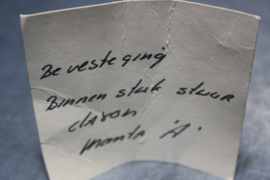 Bevestiging
Binnen stuk stuur
claxon
manta 'A'.